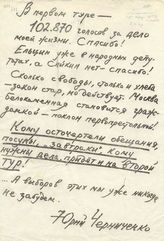 В первом туре —
102.870 голосов за дело
моей жизни. Спасибо!
Ельцин уже в народных депу-
татах, а Ельцин нет — спасибо!
Сколько свободы, столько и хлеба
— закон стар, но действует. Москва
Белокаменная становится граж-
данской — поклон первопрестольной!
Кому осточертели обещания,
посулы, "завтраки", кому
нужны дела, придёт и на второй
тур!
...А выборов этих мы уже никогда
не забудем.
Юрий Черниченко